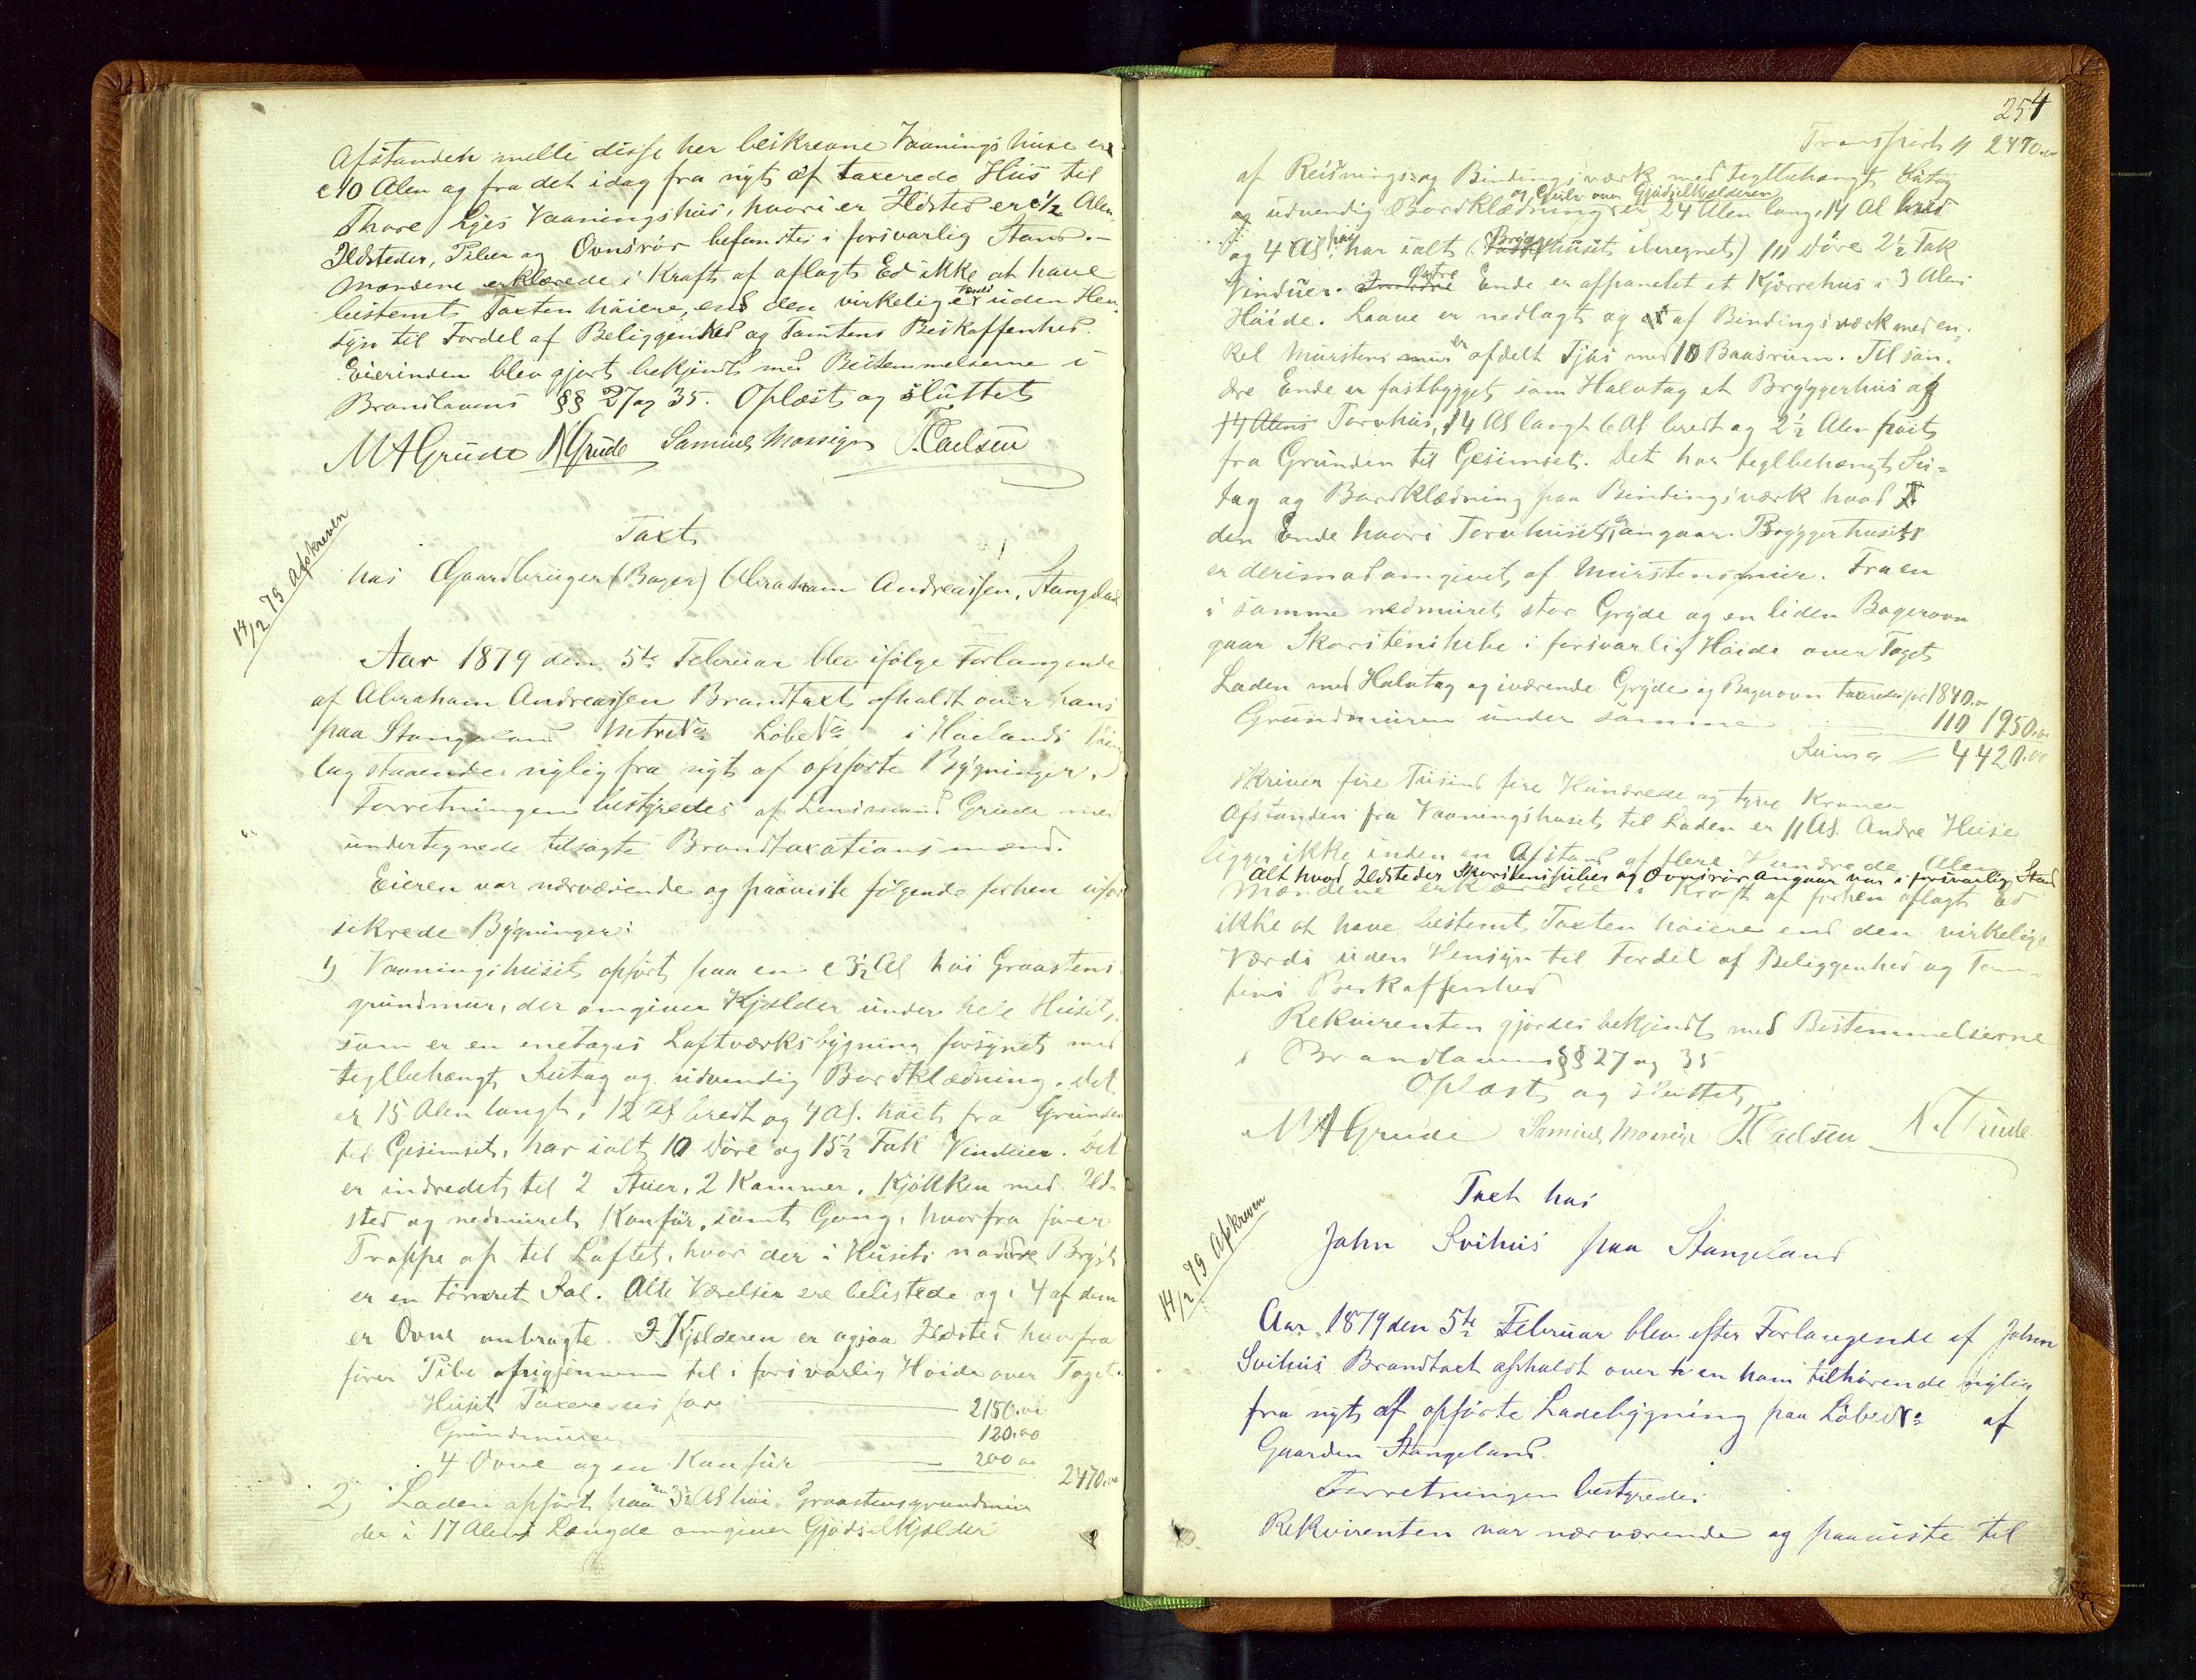 Afstanden melle disse her beskrevne Vaanings huse er
c 10 Alen og fra det idag fra nyt af taxerede Hus til
Thore Ejes Vaaningshus, hvori er Ildsted er c 1/2 Alen.
Ildsteder, Piber og Ovnsrör befandtes i forsvarlig Stand.-
Mændene erklærede i Kraft af aflagt Ed ikke at have
bestemt Taxten høiere, end den virkelige Værdi uden Hen-
syn til Fordel af Beliggenhed og Tomtens Beskaffenhed.
Eierinden blev gjort bekjendt med Bestemmelserne i
Brandlovens §§ 27 og 35. Oplæst og sluttet
M A Grude N Grude Samuel Mossige T. Carlsen
14/2 79 Afskreven
Taxt
hos Gaardbruger (Bager) Abraham Andreassen, Stangeland
Aar 1879 den 5te Februar blev ifølge Forlangende
af Abraham Andreassen Brandtaxt afholdt over hans
paa Stangeland Mtr No Løbe No i Høilands Thing
lag staaende nylig fra nyt af opførte Bygninger.
Forretningen bestyredes af Lensmand Grude med
undertegnede tilsagte Brandtaxationsmænd.
Eieren var nærværende og paaviste følgende forhen ufor
sikrede Bygninger:
1) Vaaningshuset opført paa en c 3½ Al høi Graastens
grundmur, der omgiver Kjelder under hele Huset,
som er en enetages Loftværksbygning forsynet med
teglbehængt Sutag og udvendig Bordklædning. Det
er 15 Alen langt, 12 Al bredt og 4 Al. høit fra Grunden
til Gesimset, har ialt 10 Døre og 15½ Fak Vinduer. Det
er indredet til 2 Stuer, 2 Kammer, Kjøkken med Ild-
sted og nedmuret Komfür, samt Gang, hvorfra fører
Trappe op til Loftet, hvor der i Husets nordre Bryst
er en tømret Sal. Alle Værelser ere belistede og i 4 af dem
er Ovne anbragte. I Kjelderen er ogsaa Ildsted hvorfra
fører Pibe opigjennem til i forsvarlig Høide over Taget.
Huset Taxeredes for 2150.00
Grundmuren 120.00
4 Ovne og en Komfür 200 00 2470.00
2) Laden opført paa en 3½ Al høi Graastensgrundmur
der i 17 Alens Længde omgiver Gjødselkjelder
254
Transport 2470.00
af Reisnings og Bindingsværk med teglbehængt Sutag
og Gulv over Gjødselkjelderen
og udvendig Bordklædning er 24 Alen lang, 14 Al bred
og 4 Al høi, har ialt (Brygghuset iberegnet) 10 Døre 2½ Fak
Vinduer. I østre Ende er afpanelet et Kjærrehus i 3 Alens
Høide. Laave er nedlagt og af Bindingsværk med en-
kel Murstens er afdelt Fjøs med 10 Baasrum. Til søn-
dre Ende er fastbygget som Halvtag et Bryggerhus og
14 Alens Torvhus, 14 Al langt 6 Al bredt og 2½ Alen høit
fra Grunden til Gesimset. Det har teglbehængt Su-
tag og Bordklædning paa Bindingsværk hvad
den Ende hvori Torvhuset er, angaar. Bryggerhuset
er derimod omgivet af Murstensmur. Fra en
i samme nedmuret stor Gryde og en liden Bagerovn
gaar Skorstenspibe i forsvarlig Høide over Taget
Laden med Halvtag og iværende Gryde og Bagerovn taxeredes for 1840.00
Grundmuren under samme 110 1950.00
Suma 4420.00
skriver fire Tusind fire Hundrede og tyve Kroner
Afstanden fra Vaaningshuset til Laden er 11 Al. Andre Huse
ligger ikke inden en Afstand af flere Hundrede Alen
Alt hvad Ildsteder Skorstenspiber og Ovnsrør angaar var i forsvarlig Stand
Mændene erklærede i Kraft af forhen aflagt Ed
ikke at have bestemt Taxten høiere end den virkelige
Værdi uden Hensyn til Fordel af Beliggenhed og Tom-
tens Beskaffenhed
Rekvirenten gjordes bekjendt med Bestemmelserne
i Brandlovens §§ 27 og 35
Oplæst og sluttet
M A Grude Samuel Mossige T. Carlsen N. Grude
14/2 79 Afskreven
Taxt hos
John Svihus paa Stangeland
Aar 1879 den 5te Februar blev efter Forlangende af John
Svihus Brandtaxt afholdt over en ham tilhørende nylig
fra nyt af opførte Ladebygning paa Løbe No af
Gaarden Stangeland.
Forretningen bestyredes
Rekvirenten var nærværende og paaviste til